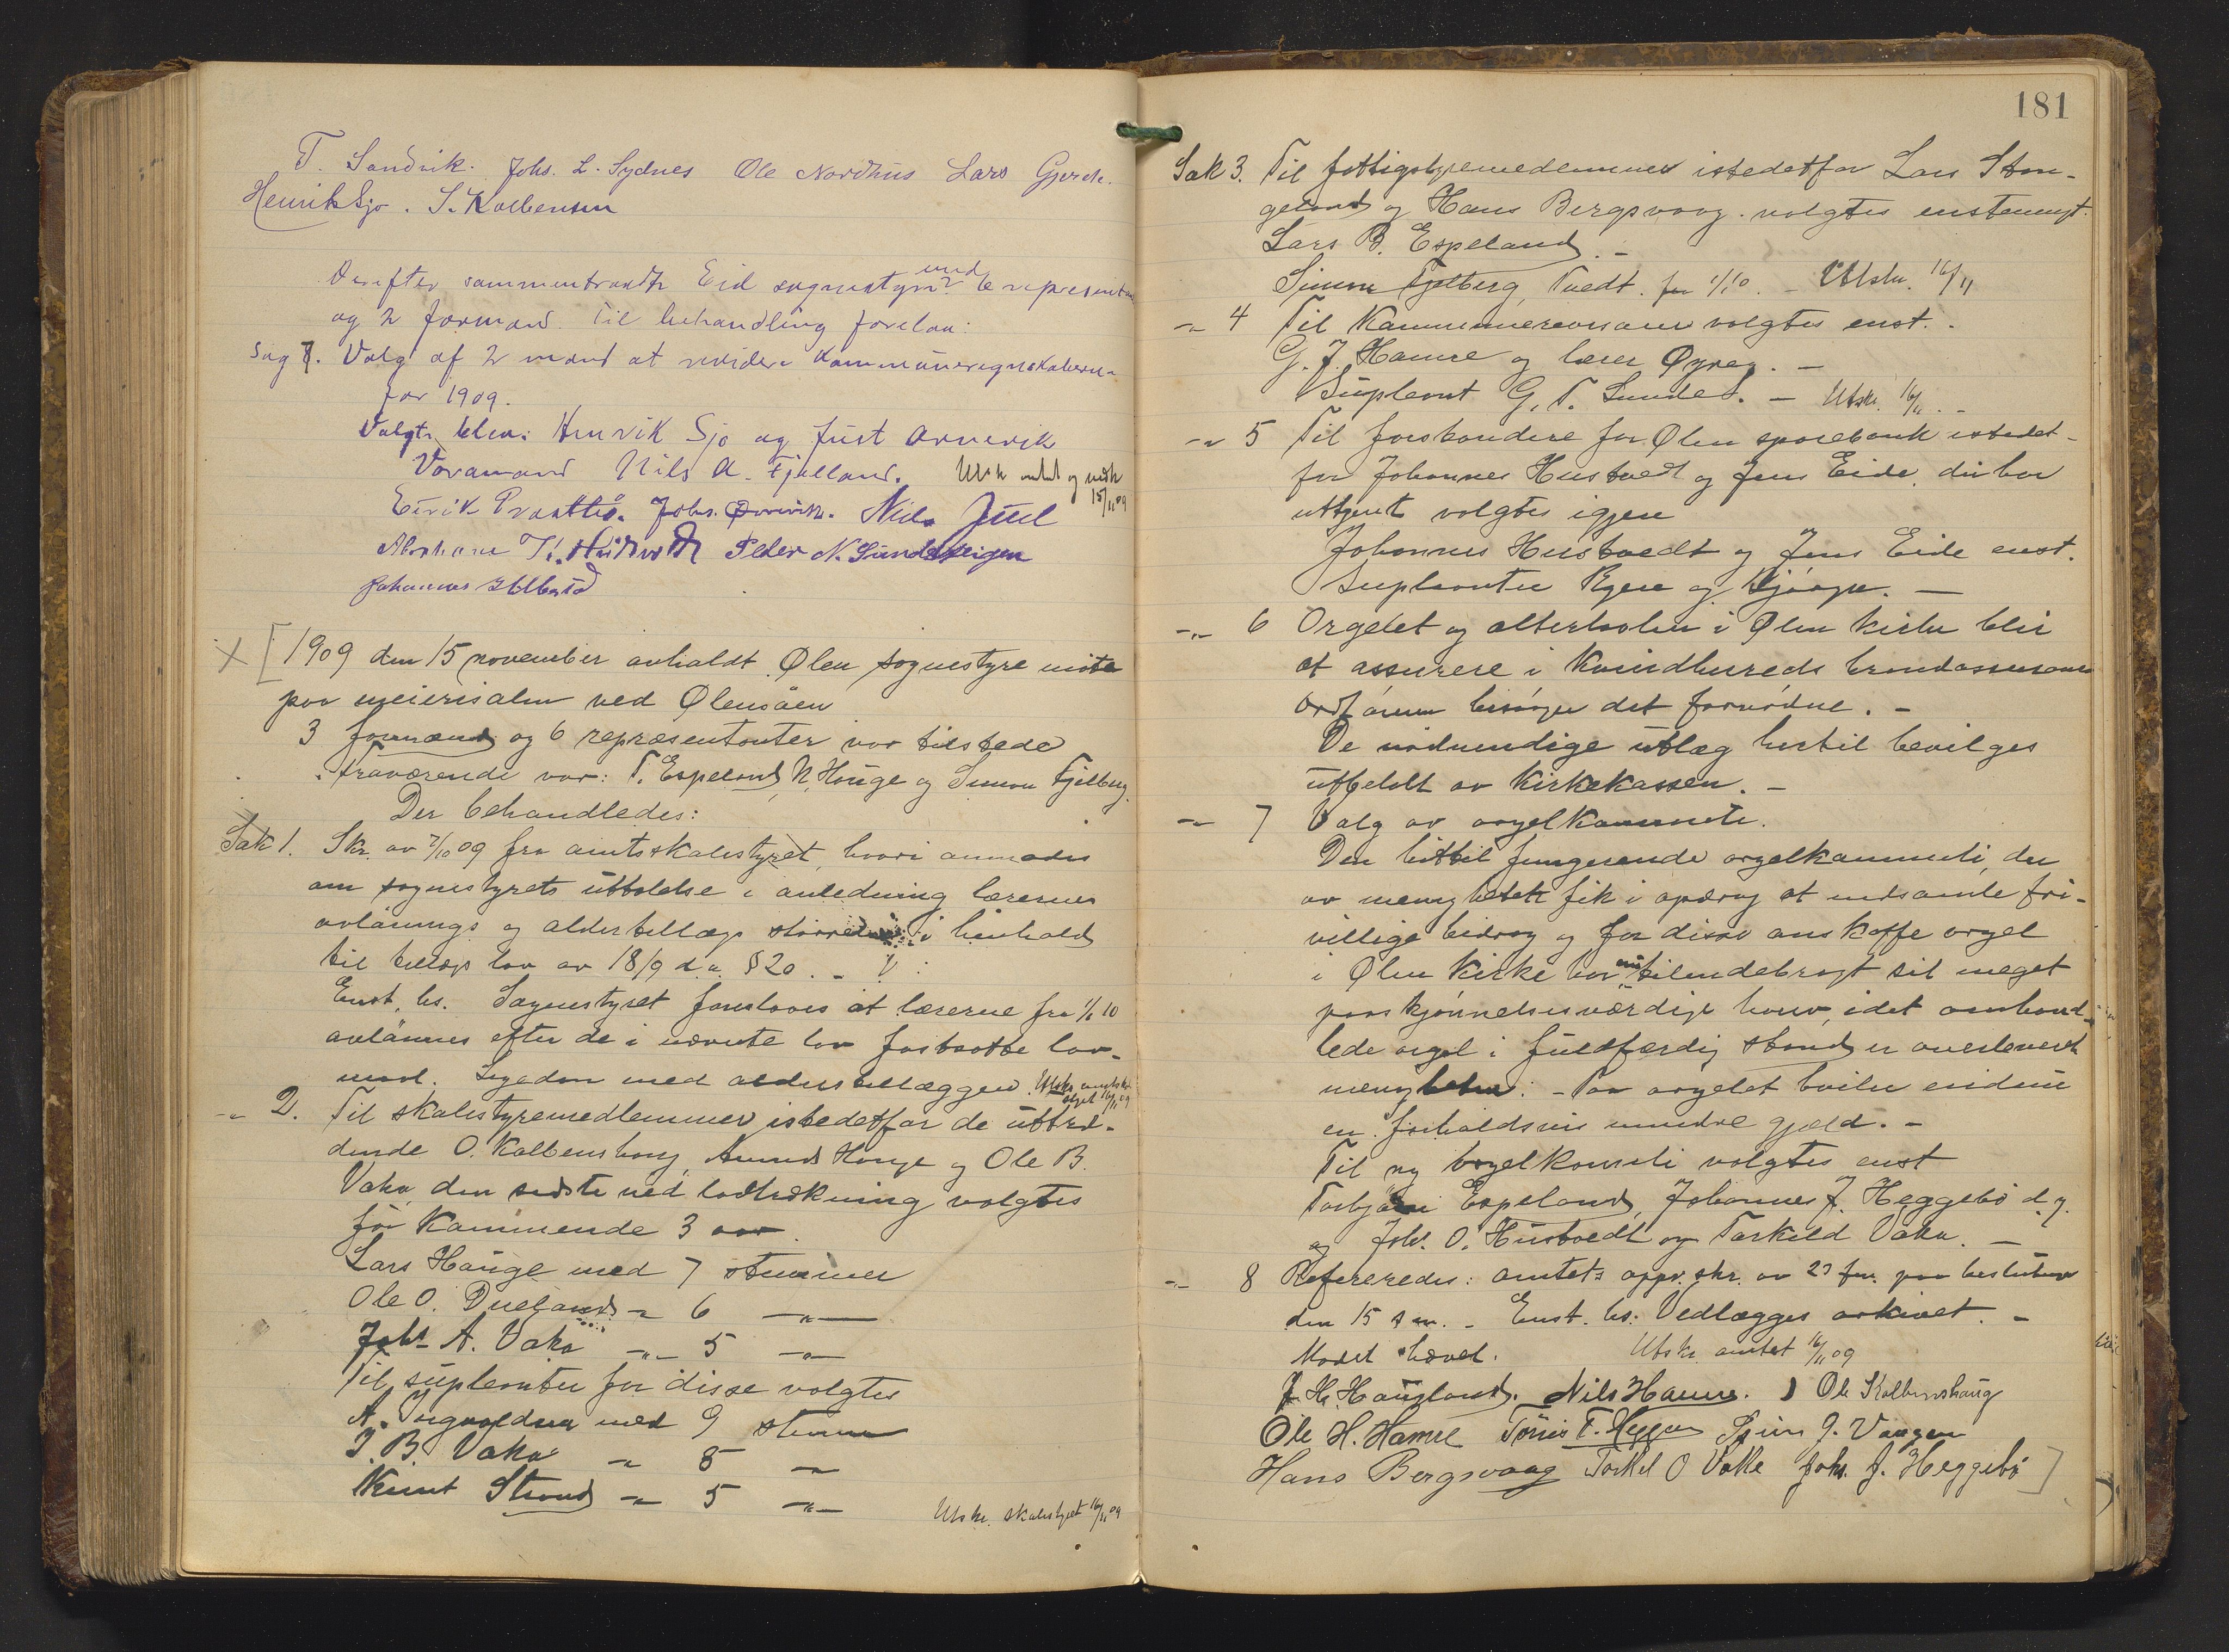 T. Sandvik. Johs. L. Sydnes Ole Nordhus Lars Gjerde.
Henrik Sjo. S. Kolbensen
Derefter sammentraadte Eid sognestyre med 6 represent
og 2 formænd. Til behandling forelaa:
Sag 7. Valg af 2 mænd at revidere Kommuneregnskaberne
for 1909.
Valgte blev: Henrik Sjo og Just Arnevik
Varamand Nils A. Fjelland. Utsk amtet og
15/11 09
Eirik Prestbø. Johs. Nils Juel
Abraham T. Peder N. Sundsteigen
Johannes
1909 den 15 november avholdt Ølen sognestyre møte
paa meierisalen ved Ølensöen
3 formænd og 6 repræsentanter var tilstede
Fraværende var: T. Espeland, N. Houge og Simon Fjelberg.
Der behandledes:
Sak 1. Skr. av 7/10 09 fra amtsskolestyret, hvori anmodes
om sognestyrets uttalelse i anledning lærernes
avlönnings og alderstillægs störrelse i henhold
til tillægs lov av 18/9 d.a. § 20. -
Enst. bs. Sognestyret foreslaaes at lærerne fra 1/1 10
avlönnes efter de i nævnte lov fastsatte lav-
maal. Ligedan med alderstillæggen. Utskr. amtssko
16/11 09
-"- 2. Til skolestyremedlemmer istedetfor de uttræ-
dende O. Kolbenshaug, Amund Houge og Ole B.
Vaka, den sidste ved lodtrækning valgtes
for kommende 3 aar.
Lars Hauge med 7 stemmer
Ole O. Dueland -"- 6 -"-
Johs A. Vaka -"- 5 -"-
Til supleanter for disse valgtes
A. Ingvaldsen med 9 stemmer
T. B. Vaka -"- 8 -"-
Knut Strand -"- 5 -"-
Utskr. skolestyret 16/11 09
181
Sak 3. Til fattigstyremedlemmer istedetfor Lars Ston-
geland og Hans Bergsvaag valgtes enstemmigt
Lars B. Espeland. -
Simon Fjelberg, Tvedt. fra 1/1 10. - Utskr. 16/11
-"- 4 Til Kommunerevisorer valgtes enst.
G. J. Hamre og lærer Øyrag. -
Supleant G. T. Lunde. - Utskr. 16/11. -
-"- 5 Til forstandere for Ølen sparebank istedet-
for Johannes Hustvedt og Jens Eide, der har
uttjent valgtes igjen
Johannes Hustvedt og Jens Eide enst.
Supleanter og -
-"- 6 Orgelet og altertavlen i Ølen kirke blir
at assurere i Kvindhereds brandassurance
Ordföreren besörger det fornödne. -
De nödvendige utlæg hertil bevilges
utbetalt av kirkekassen. -
-"- 7 Valg av orgelkommite.
Den hittil fungerende orgelkommite, der
av menigheten fik i opdrag at indsamle fri-
villige bidrag og for disse anskaffe orgel
i Ølen kirke har nu tilendebragt sit meget
paaskjönnelsesværdige hverv, idet omhand-
lede orgel i fuldfærdig stand er overleveret
menigheten. - Paa orgelet hviler endnu
en forholdsvis mindre gjæld. -
Til ny orgelkomite valgtes enst
Torbjörn Espeland, Johannes J. Heggebö d.y.
og Johs. O. Hustvedt og Torkild Vaka. -
-"- 8 Refereredes: amtets appr. skr. av 23 fm. paa beslutning
den 15 s m. - Enst. bs. Vedlægges arkivet. -
Mødet hævet. Utskr. amtet 16/11 09
J. H. Haugland. Nils Hamre. Ole Kolbenshaug
Ole H. Hamre Tönnes T. J. Vaagen
Hans Bergsvaag Torkel O Vake Johs. J. Heggebö